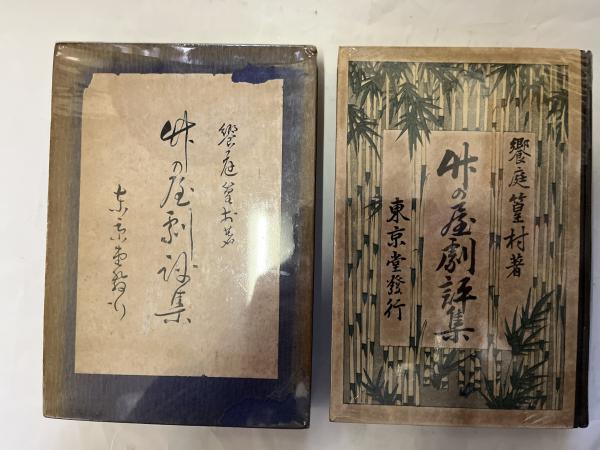 饗庭篁村著
竹の屋劇評集
東京堂發行
饗庭篁村著
竹の屋劇評集
東京堂發行